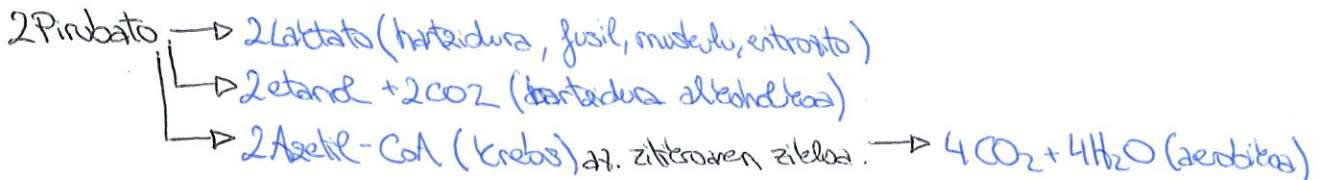 2Pirubato → 2Laktato (hartzidura, fusil, muskulu, eritrozito)
→ 2etanol + 2CO2 (hartzidura alkoholikoa)
→ 2Azetil-CoA (Krebs) az. zitrikoaren zikloa. → 4CO₂ + 4H₂O (aerobikoa)